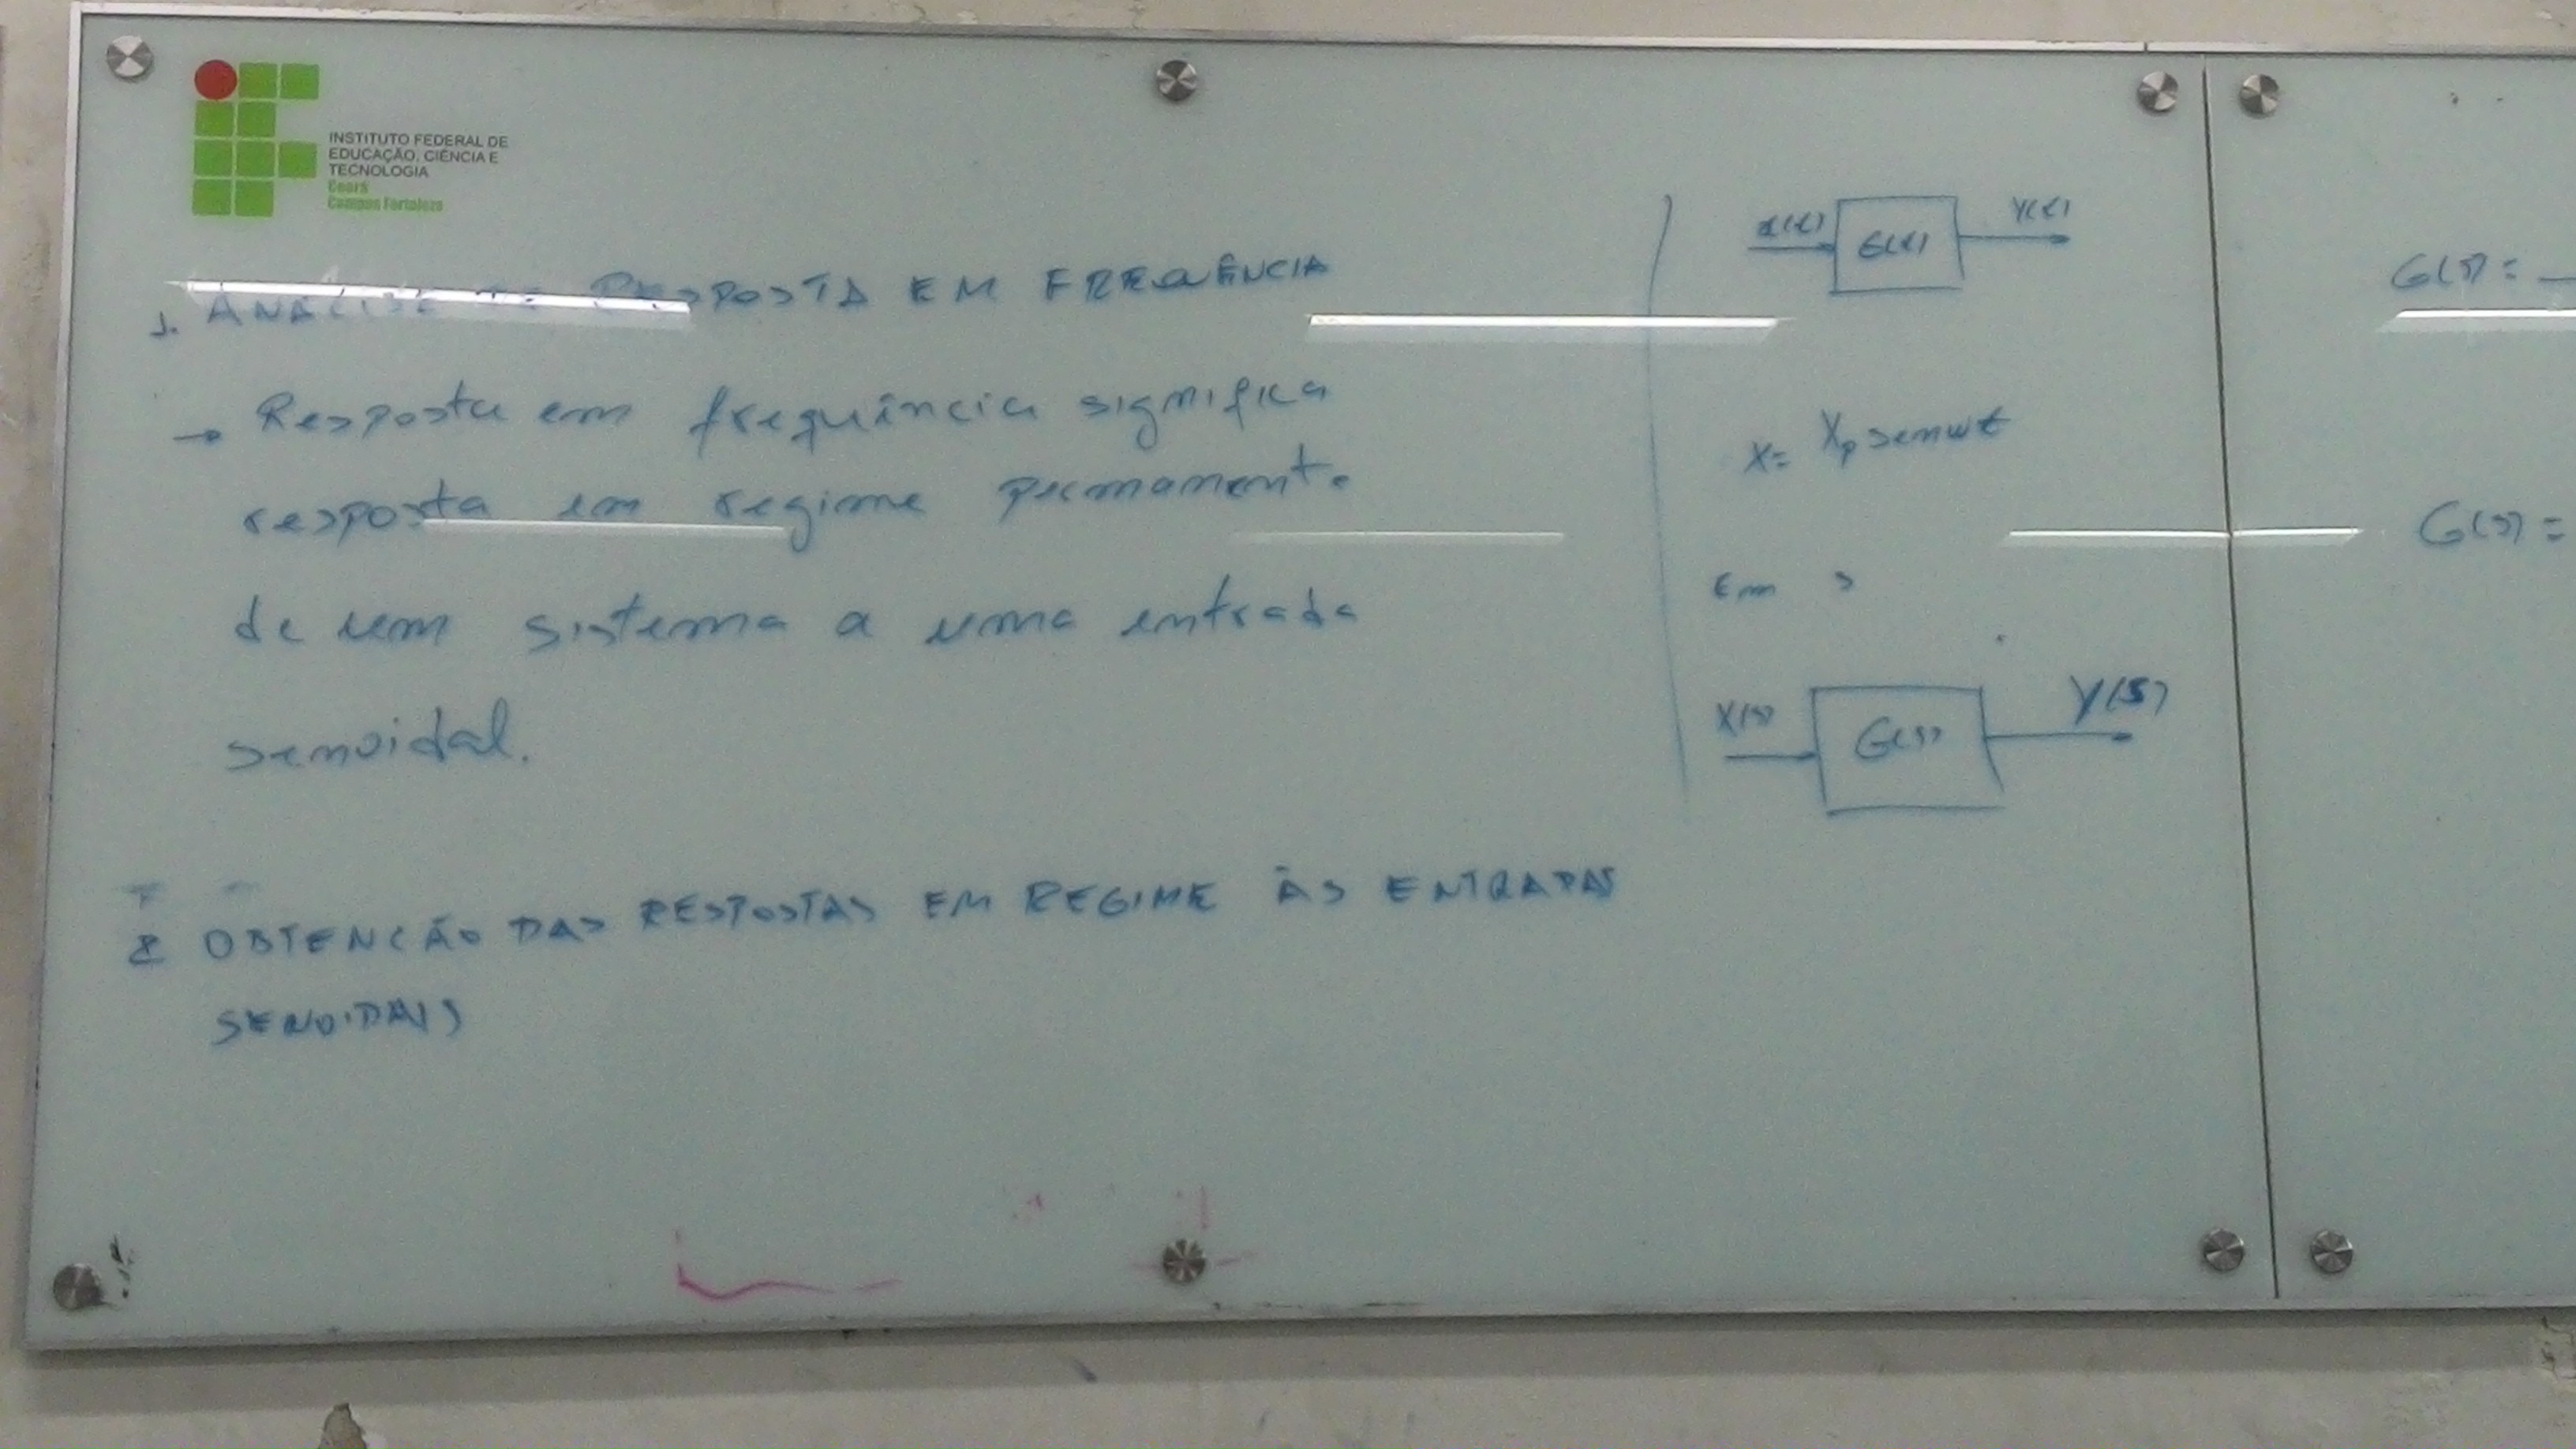 INSTITUTO FEDERAL DE
EDUCAÇÃO, CIÊNCIA E
TECNOLOGIA
Ceará
Campus Fortaleza
1. ANÁLISE DE RESPOSTA EM FREQUÊNCIA
→ Resposta em frequência significa
resposta em regime permanente
de um sistema a uma entrada
senoidal.
2 OBTENÇÃO DAS RESPOSTAS EM REGIME ÀS ENTRADAS
SENOIDAIS
x(t) G(t) y(t)
X = Xp sen wt
Em s
X(s) G(s) Y(s)
G(s) =
G(s) =